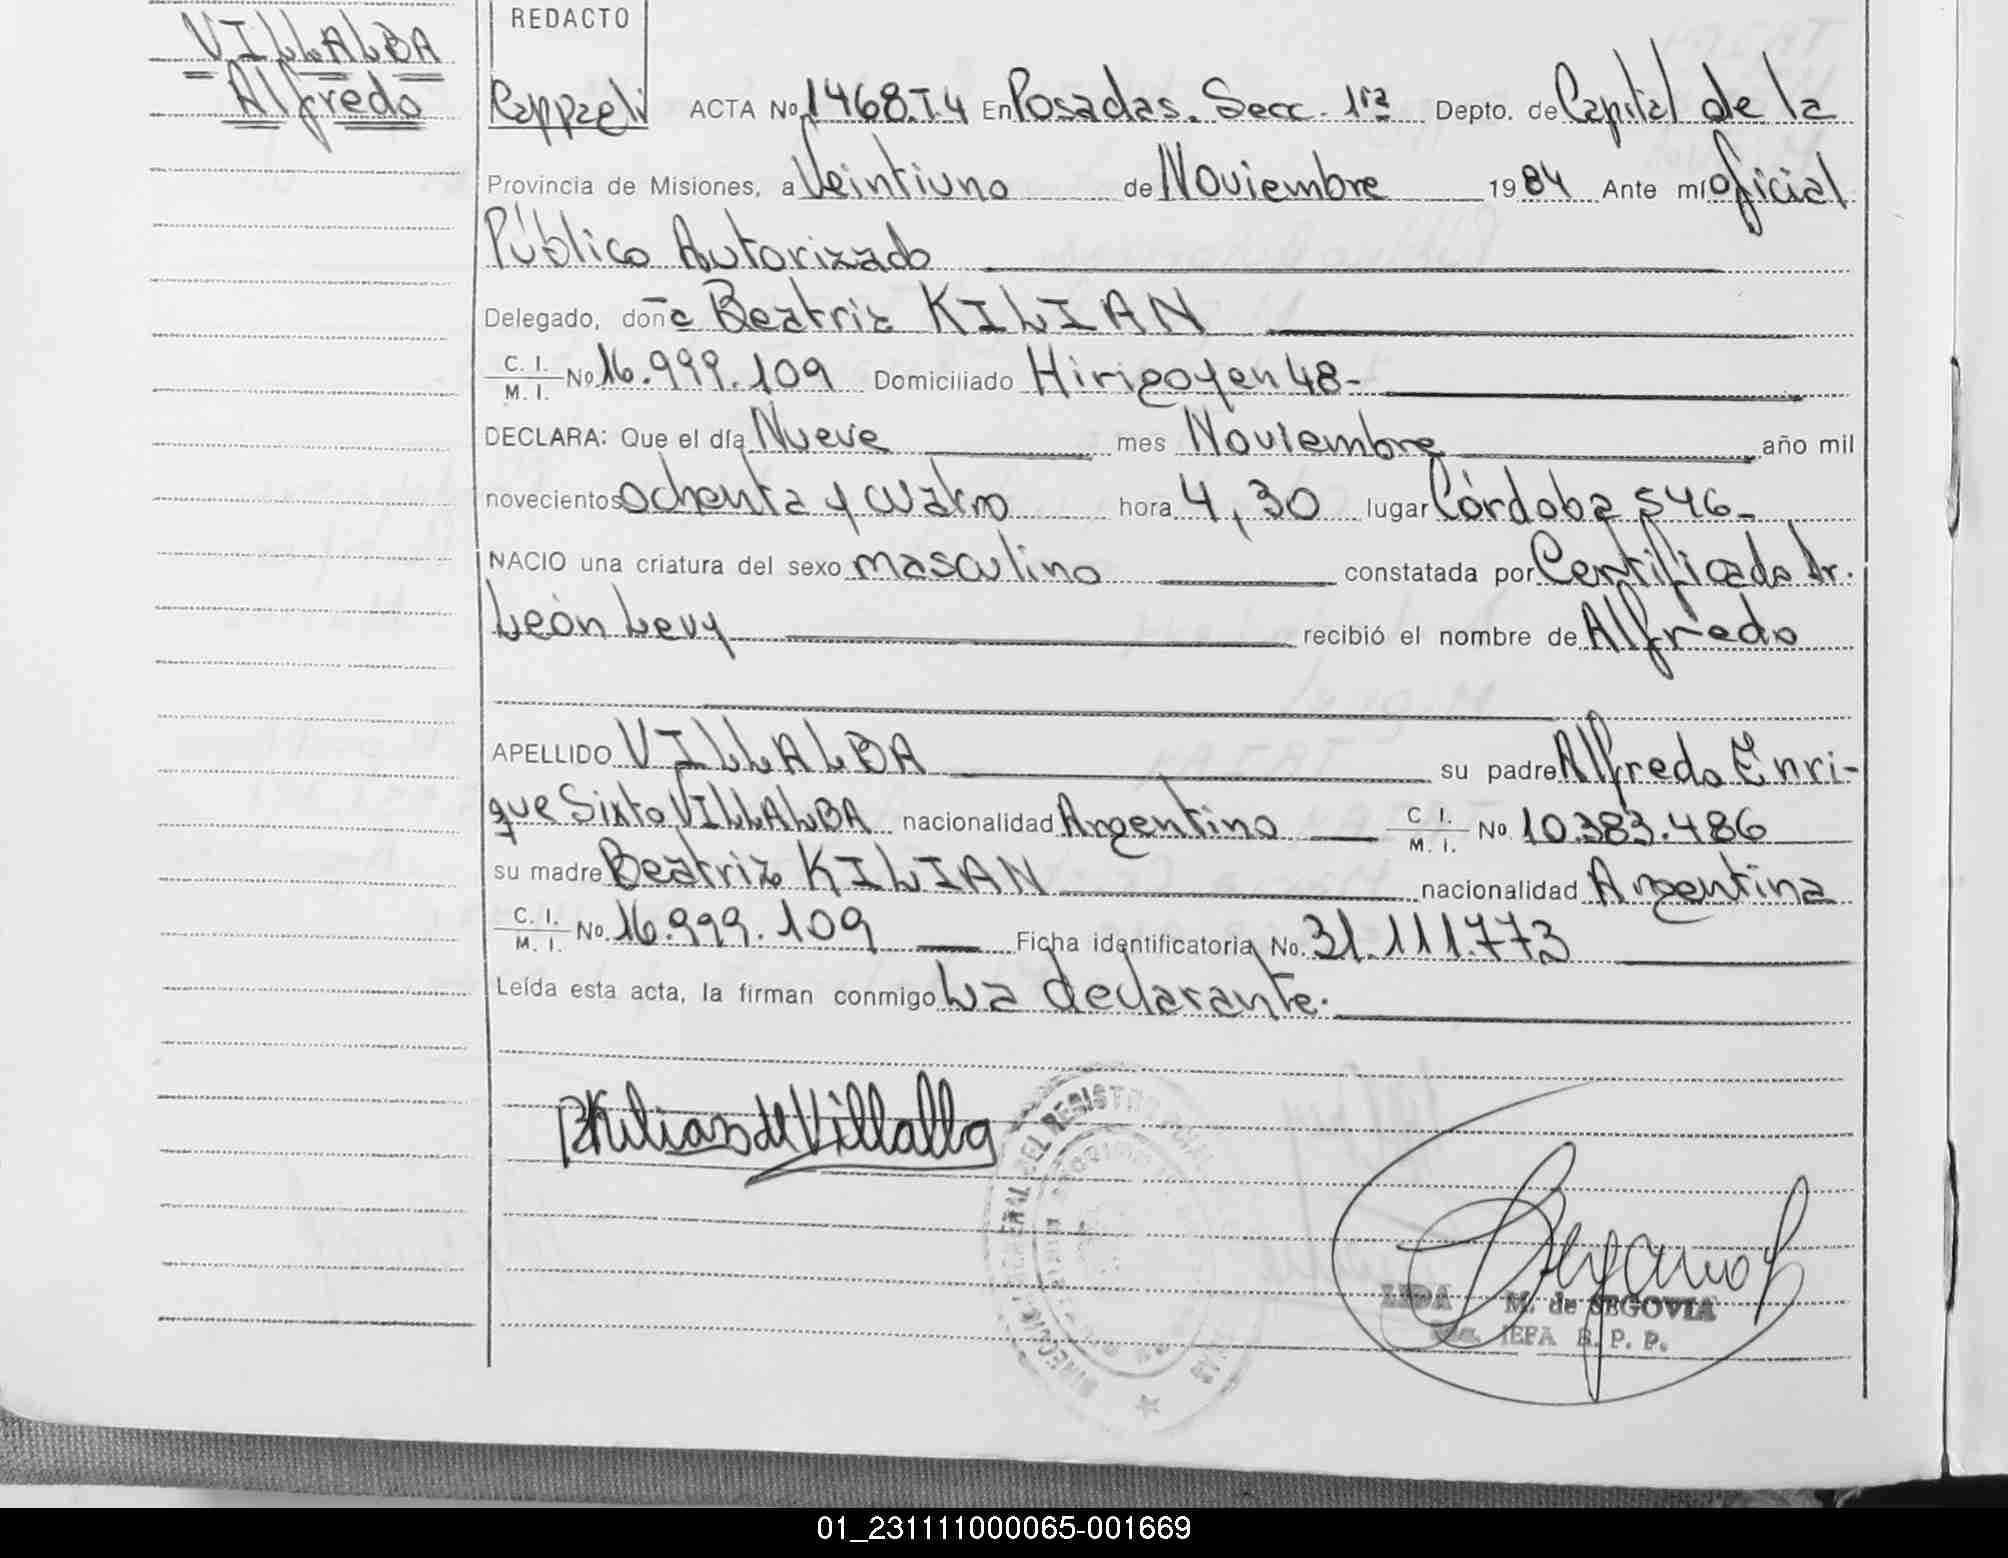 VILLALBA
Alfredo
REDACTO
Cappaeli ACTA No 1468.T.4 En Posadas. Secc. 1ra Depto. de Capital de la
Provincia de Misiones, a Veintiuno de Noviembre 1984 Ante mí Oficial
Público Autorizado
Delegado, doña Beatriz KILIAN
C. I. / M. I. No 16.999.109 Domiciliado Hirigoyen 48-
DECLARA: Que el día Nueve mes Noviembre año mil
novecientos ochenta y cuatro hora 4,30 lugar Córdoba 546-
NACIO una criatura del sexo masculino constatada por Certificado Dr.
León Levy recibió el nombre de Alfredo
APELLIDO VILLALBA su padre Alfredo Enri-
que Sixto VILLALBA nacionalidad Argentino C. I. / M. I. No. 10.383.486
su madre Beatriz KILIAN nacionalidad Argentina
C. I. / M. I. No. 16.999.109 Ficha identificatoria No. 31.111.773
Leída esta acta, la firman conmigo La declarante.
BKilian de Villalba
DEL REGISTRO
LIDA M. de SEGOVIA
JEFA R. P. P.
01_231111000065-001669